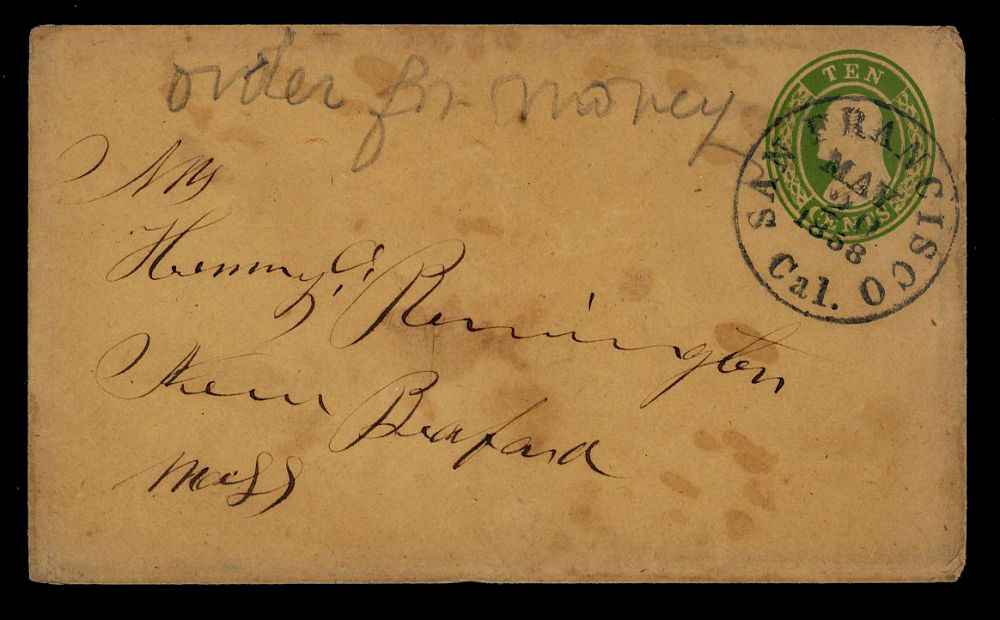 order for money
TEN
CENTS
SAN FRANCISCO
MAY
20
1858
Cal.
Mrs
Henry G. Remington
New Bedford
Mass